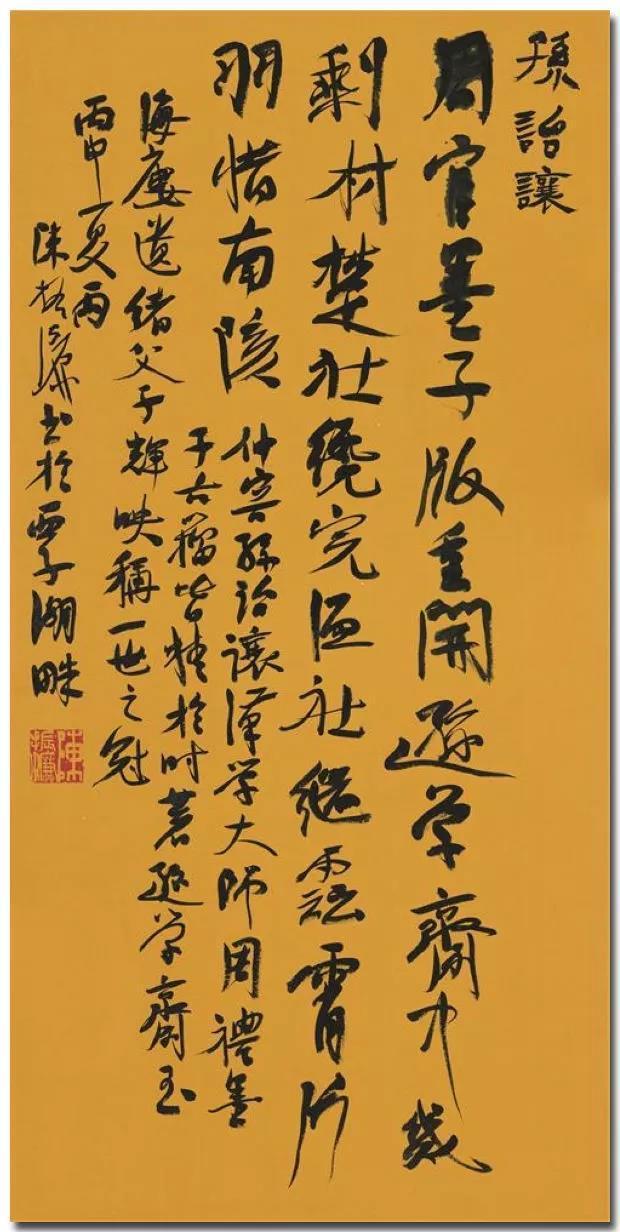 孫詒讓
周官墨子版重開遜学齋中幾
剩材楚社纔完社継霄片
羽惜南陔
仲容孫詒讓漢学大師周禮墨
子古籀皆精於时著遜学齋玉
海廔遺緒父子輝映稱一世之冠
丙申夏雨
陳振濂书於西子湖畔
陳振濂